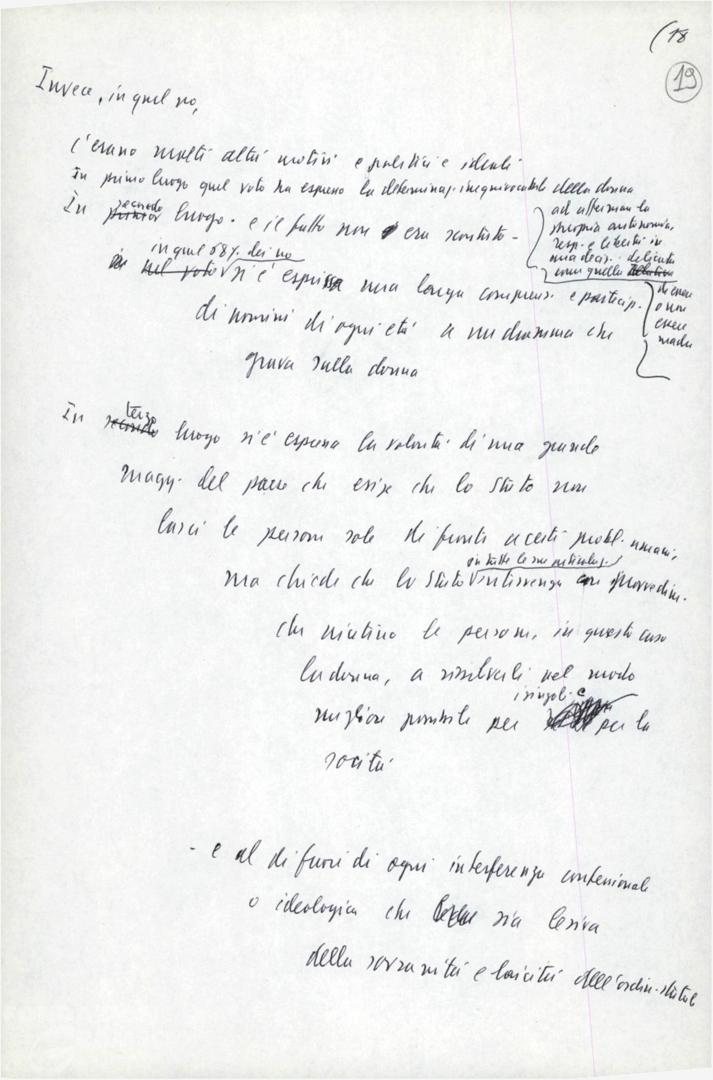 (18
19
Invece, in quel no,
c'erano molti altri motivi e politici e ideali
In primo luogo quel voto ha espresso la determinaz. inequivocabile della donna
ad affermare la
propria autonomia,
resp. e libertà in
una decis. delicata
come quella relativa
di essere
o non
essere
madre
In primo secondo luogo - e il fatto non era scontato -
in nel voto in quel 68% dei no si è espressa una larga comprens. e partecip.
di uomini di ogni età a un dramma che
grava sulla donna
In secondo terzo luogo si è espressa la volontà di una grande
magg. del paese che esige che lo Stato non
lasci le persone sole di fronte a certi probl. umani,
ma chiede che lo Stato in tutte le sue articolaz. intervenga con provvedim.
che aiutino le persone, in questo caso
la donna, a risolverli nel modo
migliore possibile per i singoli e per la
società
- e al di fuori di ogni interferenza confessionale
o ideologica che sia lesiva
della sovranità e laicità dell'ordin. statale